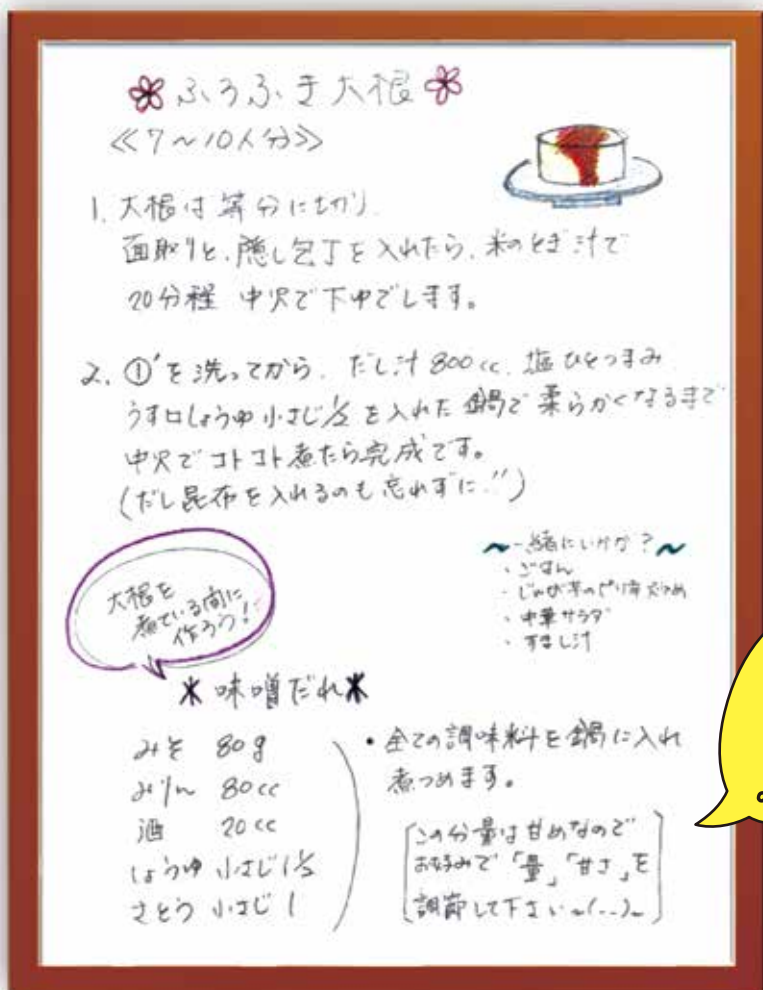 ふろふき大根
≪7〜10人分≫
1. 大根は等分に切り、
面取りと、隠し包丁を入れたら、米のとぎ汁で
20分程 中火で下ゆでします。
2. ①'を洗ってから、だし汁 800cc、塩ひとつまみ
うす口しょうゆ 小さじ1/2 を入れた鍋で柔らかくなるまで
中火でコトコト煮たら完成です。
(だし昆布を入れるのも忘れずに!!)
大根を
煮ている間に
作ろう!
〜一緒にいかが?〜
・ごはん
・じゃが芋のピリ辛炒め
・中華サラダ
・すまし汁
*味噌だれ*
みそ 80g
みりん 80cc
酒 20cc
しょうゆ 小さじ1 1/2
さとう 小さじ1
・全ての調味料を鍋に入れ
煮つめます。
[この分量は甘めなので
お好みで「量」「甘さ」を
調節して下さい〜(..)〜]